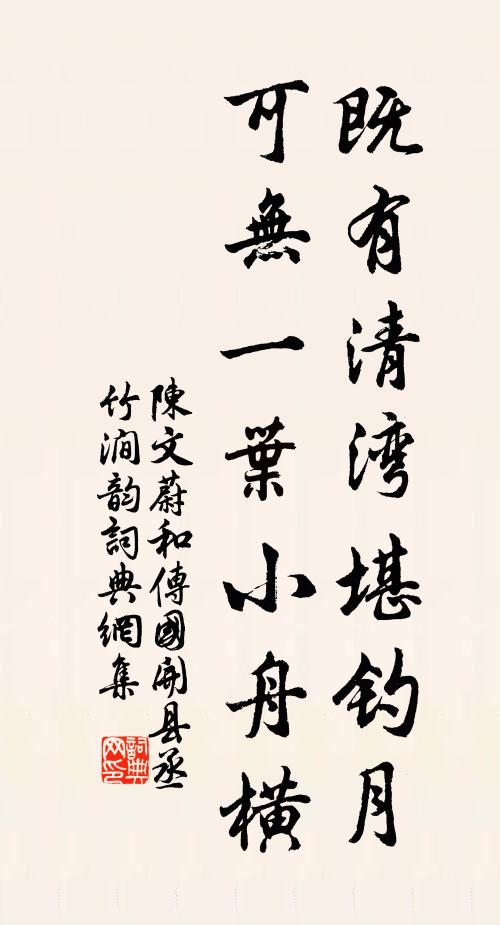 既有清湾堪钓月
可無一葉小舟橫
陳文蔚和傳國開县丞
竹澗韵詞典網集
詞典
网印